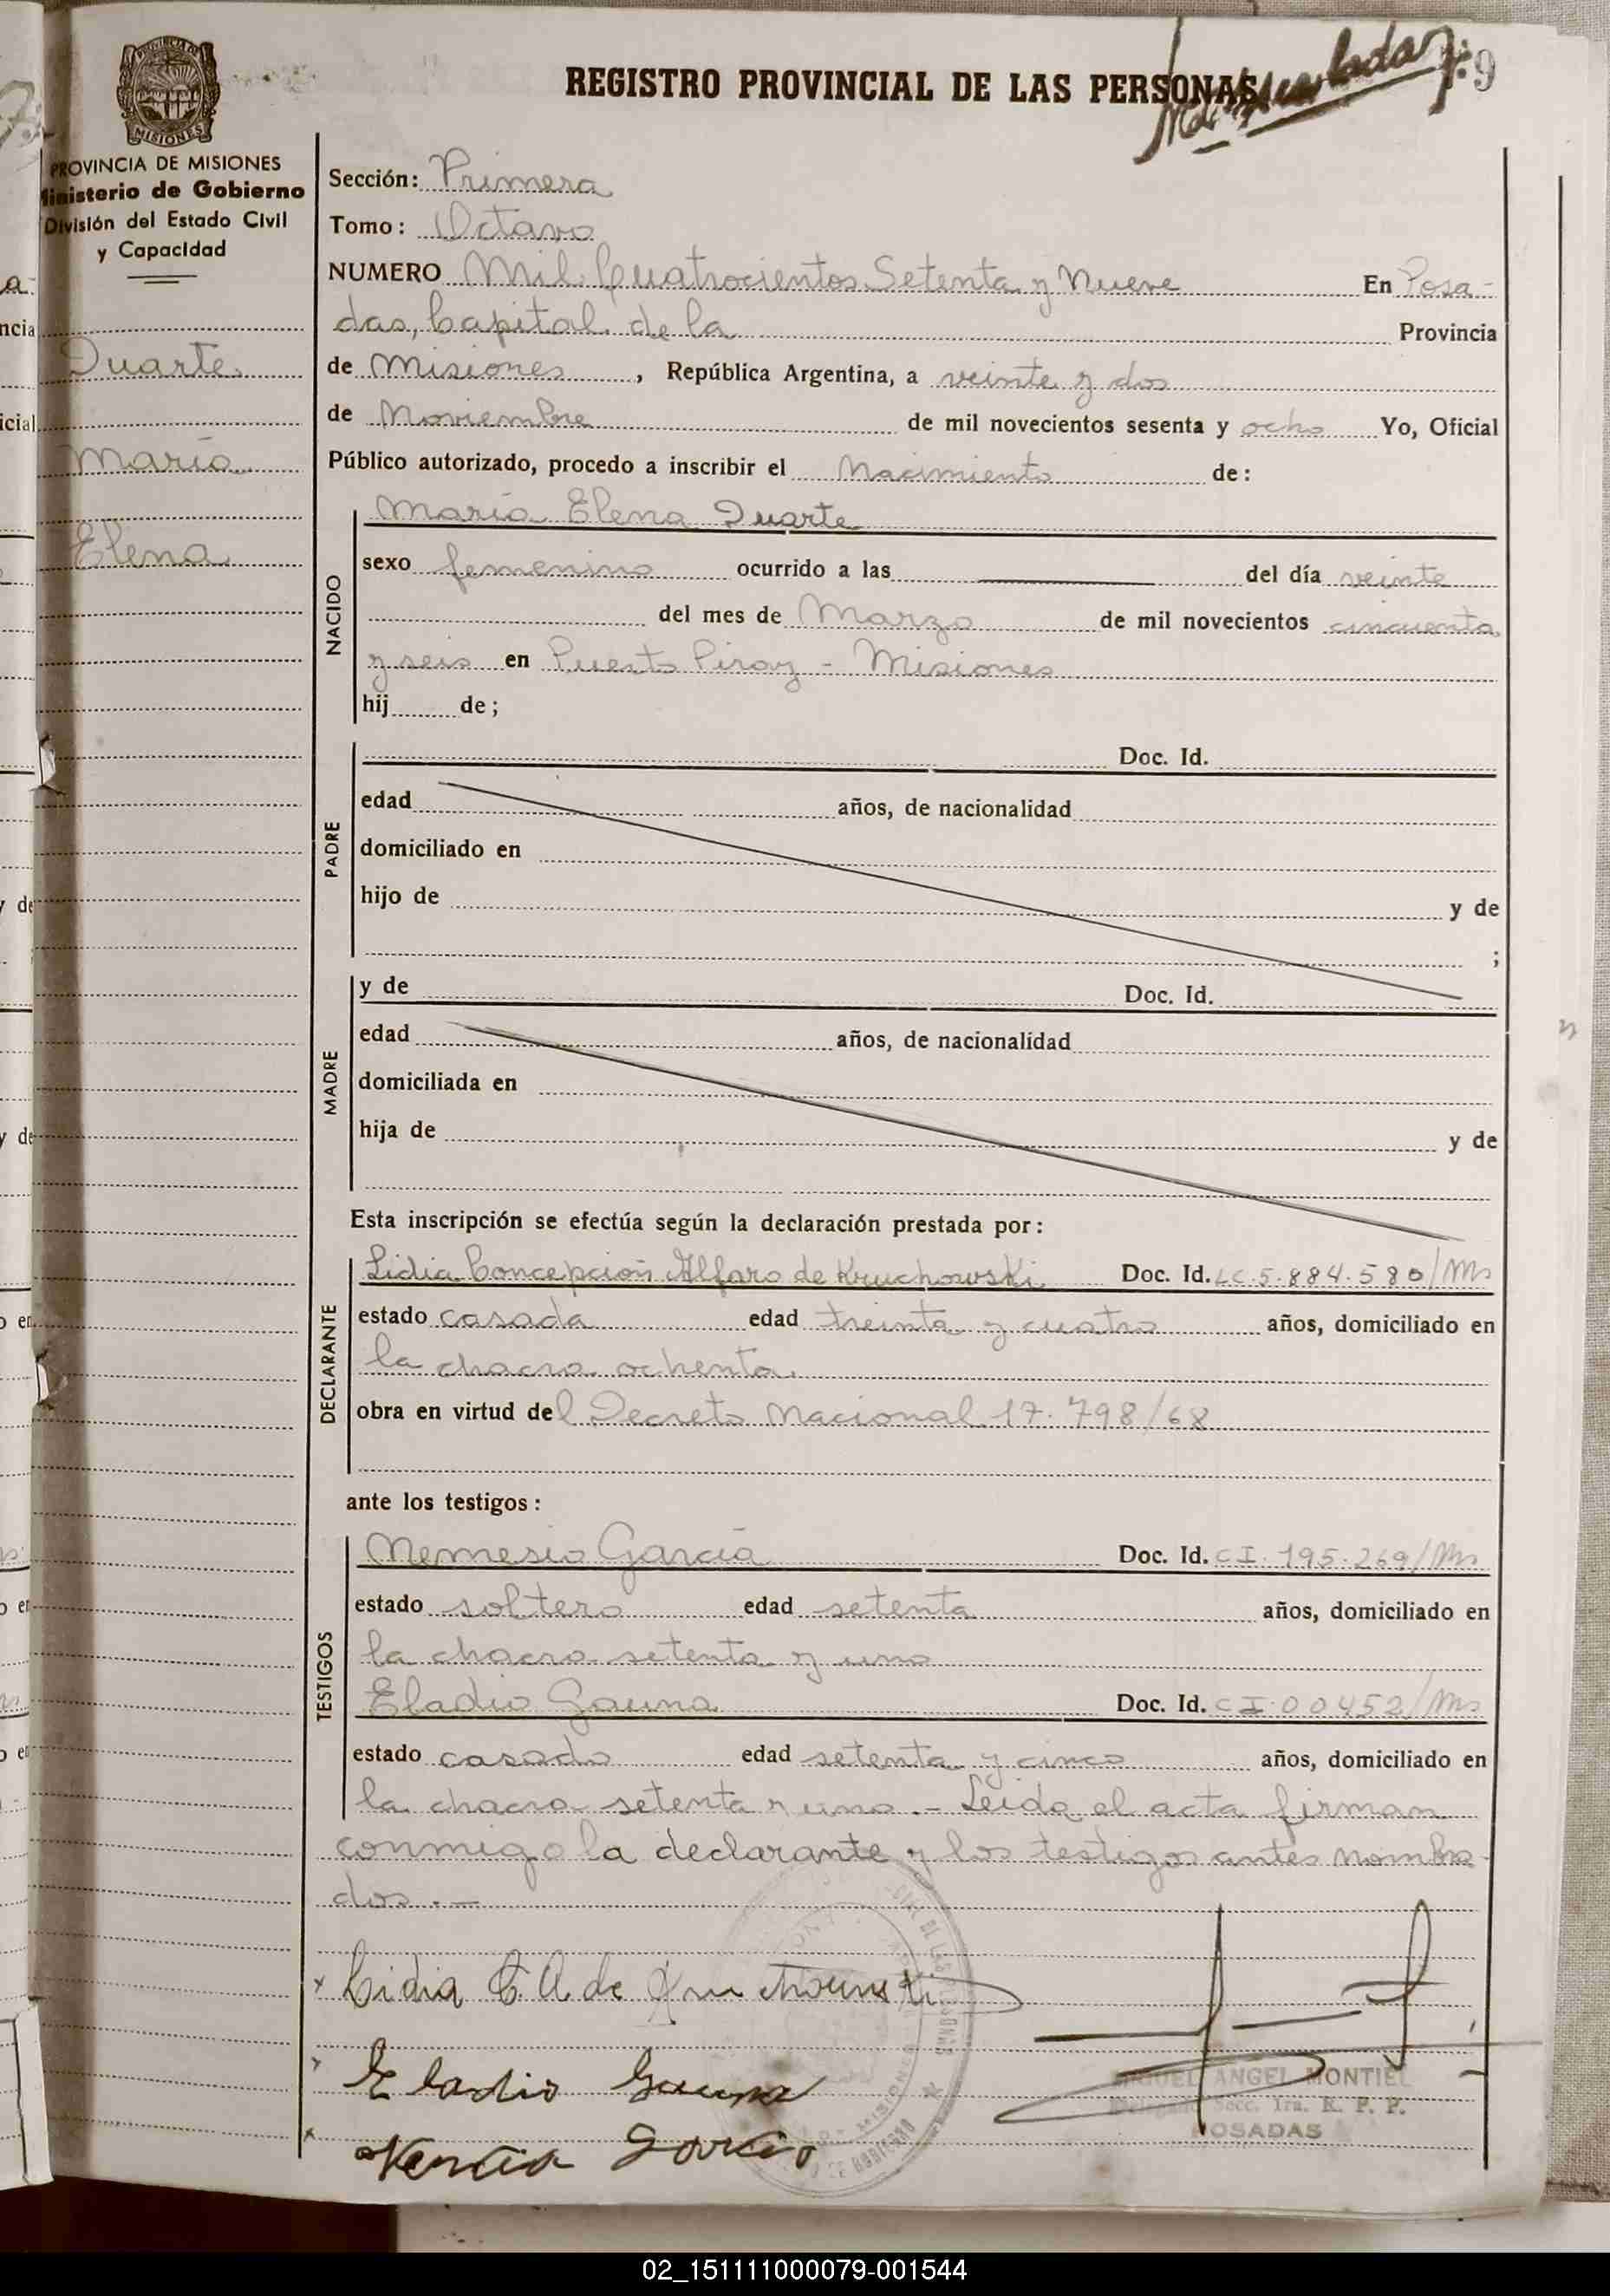 PROVINCIA DE MISIONES
Ministerio de Gobierno
División del Estado Civil
y Capacidad
Duarte
María
Elena
REGISTRO PROVINCIAL DE LAS PERSONAS
Sección: Primera
Tomo: Octavo
NUMERO Mil Cuatrocientos Setenta y Nueve En Posa-
das, Capital de la Provincia
de Misiones, República Argentina, a veinte y dos
de Noviembre de mil novecientos sesenta y ocho Yo, Oficial
Público autorizado, procedo a inscribir el Nacimiento de:
NACIDO
María Elena Duarte
sexo femenino ocurrido a las del día veinte
del mes de Marzo de mil novecientos cincuenta
y seis en Puerto Piray - Misiones
hij de;
PADRE
Doc. Id.
edad años, de nacionalidad
domiciliado en
hijo de y de
;
MADRE
y de Doc. Id.
edad años, de nacionalidad
domiciliada en
hija de y de
Esta inscripción se efectúa según la declaración prestada por:
DECLARANTE
Lidia Concepción Alfaro de Kruchowski Doc. Id. LC.5.884.580/Ms
estado casada edad treinta y cuatro años, domiciliado en
la chacra ochenta.
obra en virtud del Decreto Nacional 17.798/68
ante los testigos:
TESTIGOS
Nemesio García Doc. Id. CI.195.269/Ms
estado soltero edad setenta años, domiciliado en
la chacra setenta y uno
Eladio Gauna Doc. Id. CI.00452/Ms
estado casado edad setenta y cinco años, domiciliado en
la chacra setenta y uno.- Leída el acta firman
conmigo la declarante y los testigos antes nombra-
dos.-
Lidia C. A. de Kruchowski
Eladio Gauna
García
MIGUEL ANGEL MONTIEL
Delegado Secc. 1ra. R. P. P.
POSADAS
02_151111000079-001544